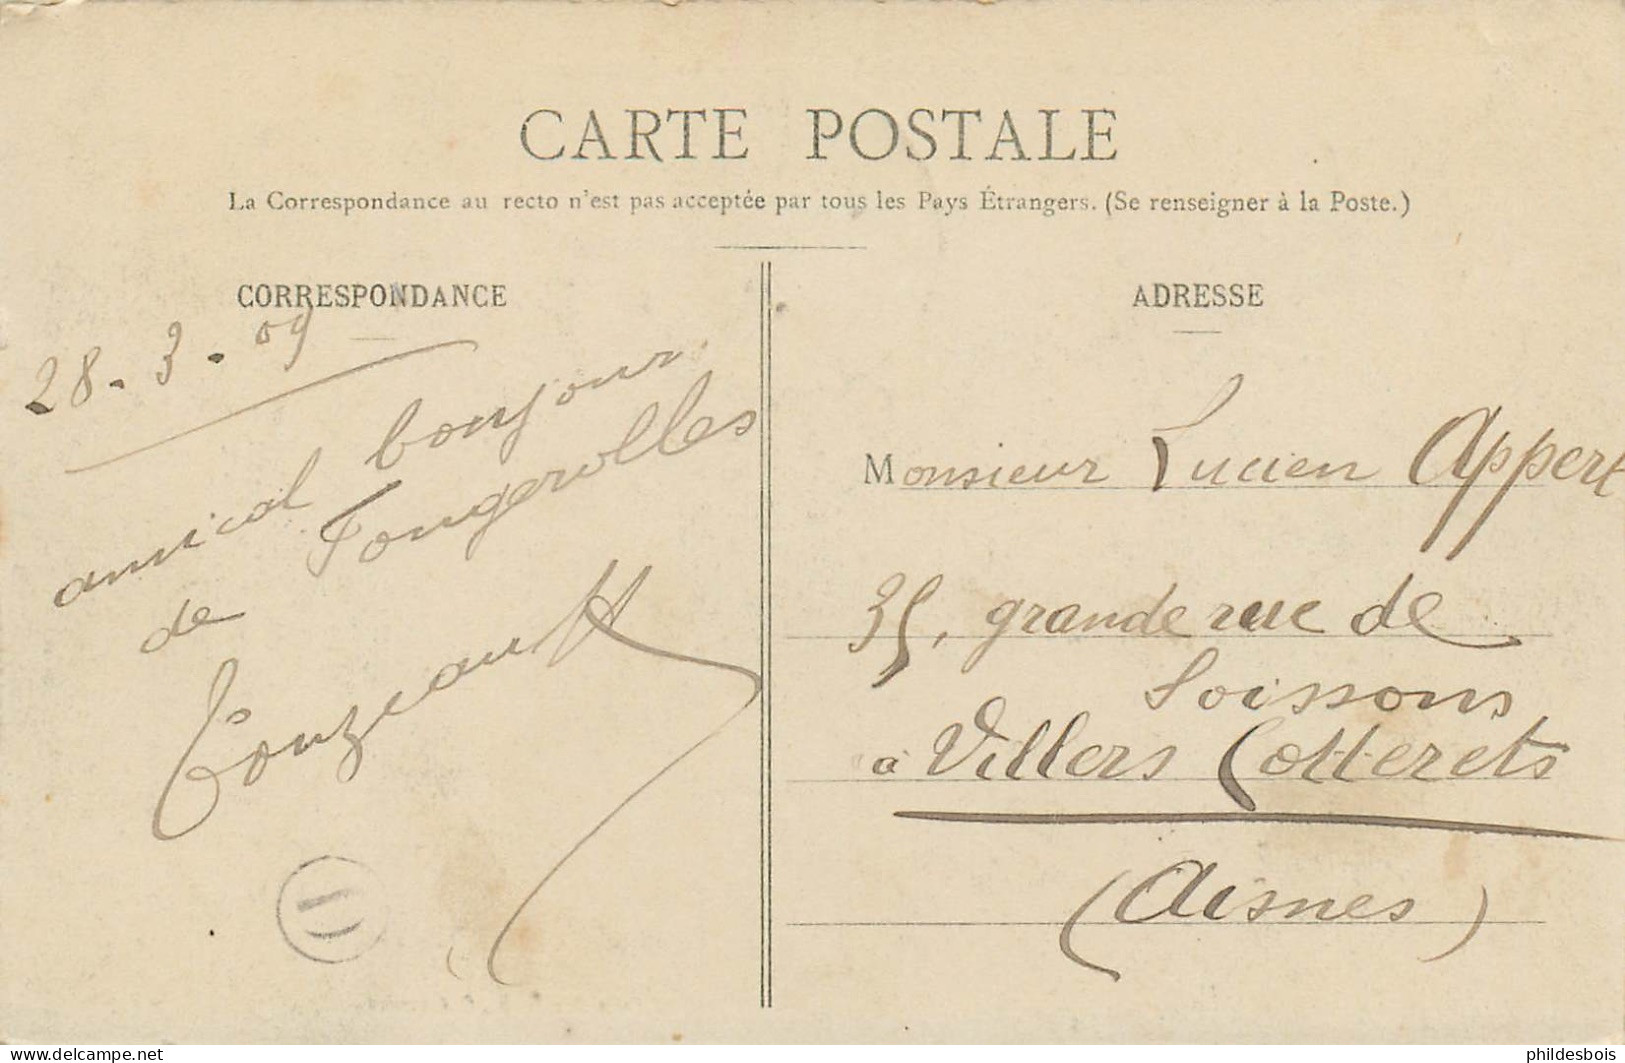 CARTE POSTALE
La Correspondance au recto n'est pas acceptée par tous les Pays Étrangers. (Se renseigner à la Poste.)
CORRESPONDANCE
28-3-09
amical bonjour
de Fougerolles
ADRESSE
Monsieur Lucien Appert
35, grande rue de
Soissons
à Villers Cotterets
(Aisnes)
Delcampe.net
phildesbois